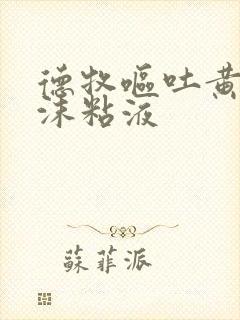 德牧呕吐黄
沫粘液
蘇菲派